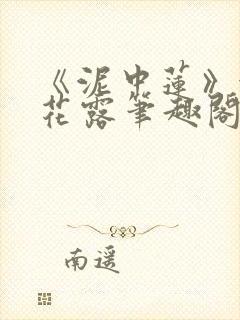 《泥中莲》
花露笔趣阁
南遥